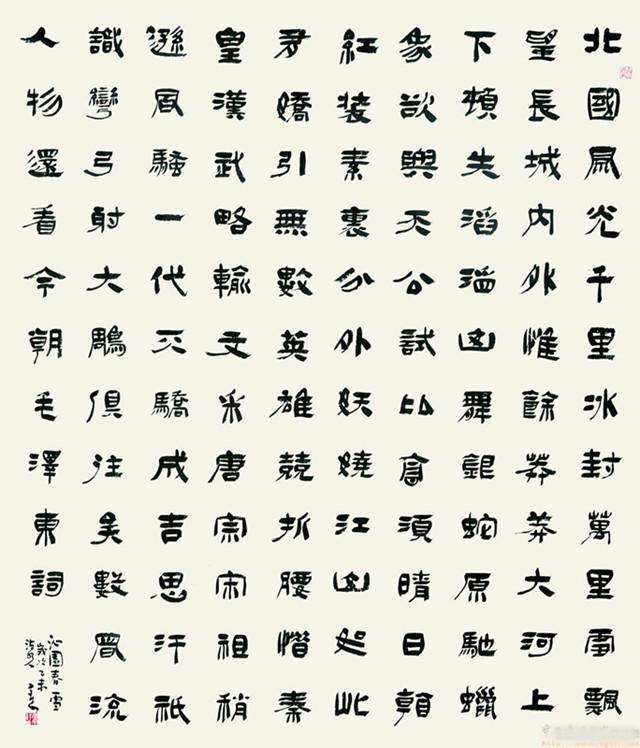 北國風光千里冰封萬里雪飄
望長城內外惟餘莽莽大河上
下頓失滔滔山舞銀蛇原馳蠟
象欲與天公試比高須晴日
紅裝素裹分外妖嬈江山如此
多嬌引無數英雄競折腰惜秦
皇漢武略輸文采唐宗宋祖稍
遜風騷一代天驕成吉思汗祇
識彎弓射大鵰俱往矣數風流
人物還看今朝毛澤東詞
沁園春雪
歲次乙未